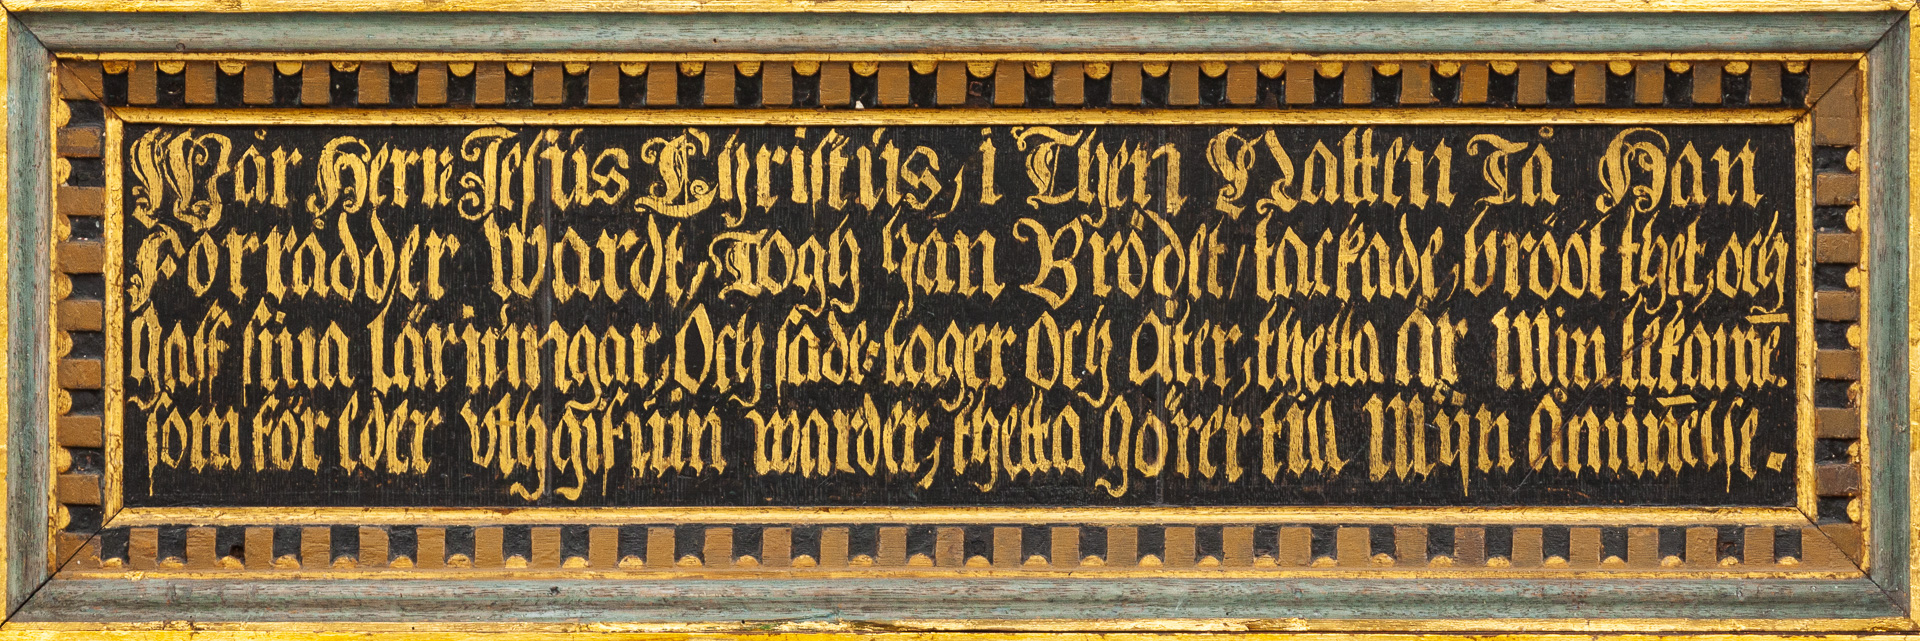 Wår Herre Jesus Christus, i Then Natten Tå Han
Förrådder wardt, Togh han Brödet, tackade, brööt thet, och
gaff sina läriungar, Och sade: tager Och äter, thetta Är Min lekamē.
som för eder vthgifuin warder, thetta görer till Mijn Åmin̄else.